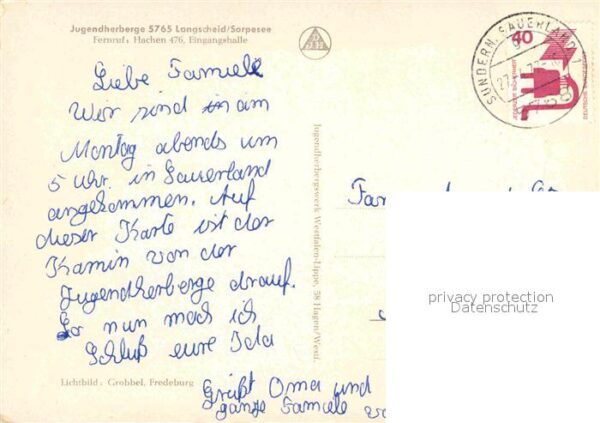 Jugendherberge 5765 Langscheid/Sorpesee
Fernruf: Hachen 476, Eingangshalle
Liebe Famiele
Wir sind in am
Montag abends um
5 Uhr. in Sauerland
angekommen. Auf
dieser Karte ist der
Kamin von der
Jugendherberge drauf.
So nun mach ich
Schluß eure Ida
Grüßt Oma und
ganze Famiele
Lichtbild: Grobbel, Fredeburg
Jugendherbergswerk Westfalen-Lippe, 58 Hagen/Westf.
SUNDERN, SAUERLAND 1
40
DEUTSCHE BUNDESPOST
Fam
privacy protection
Datenschutz